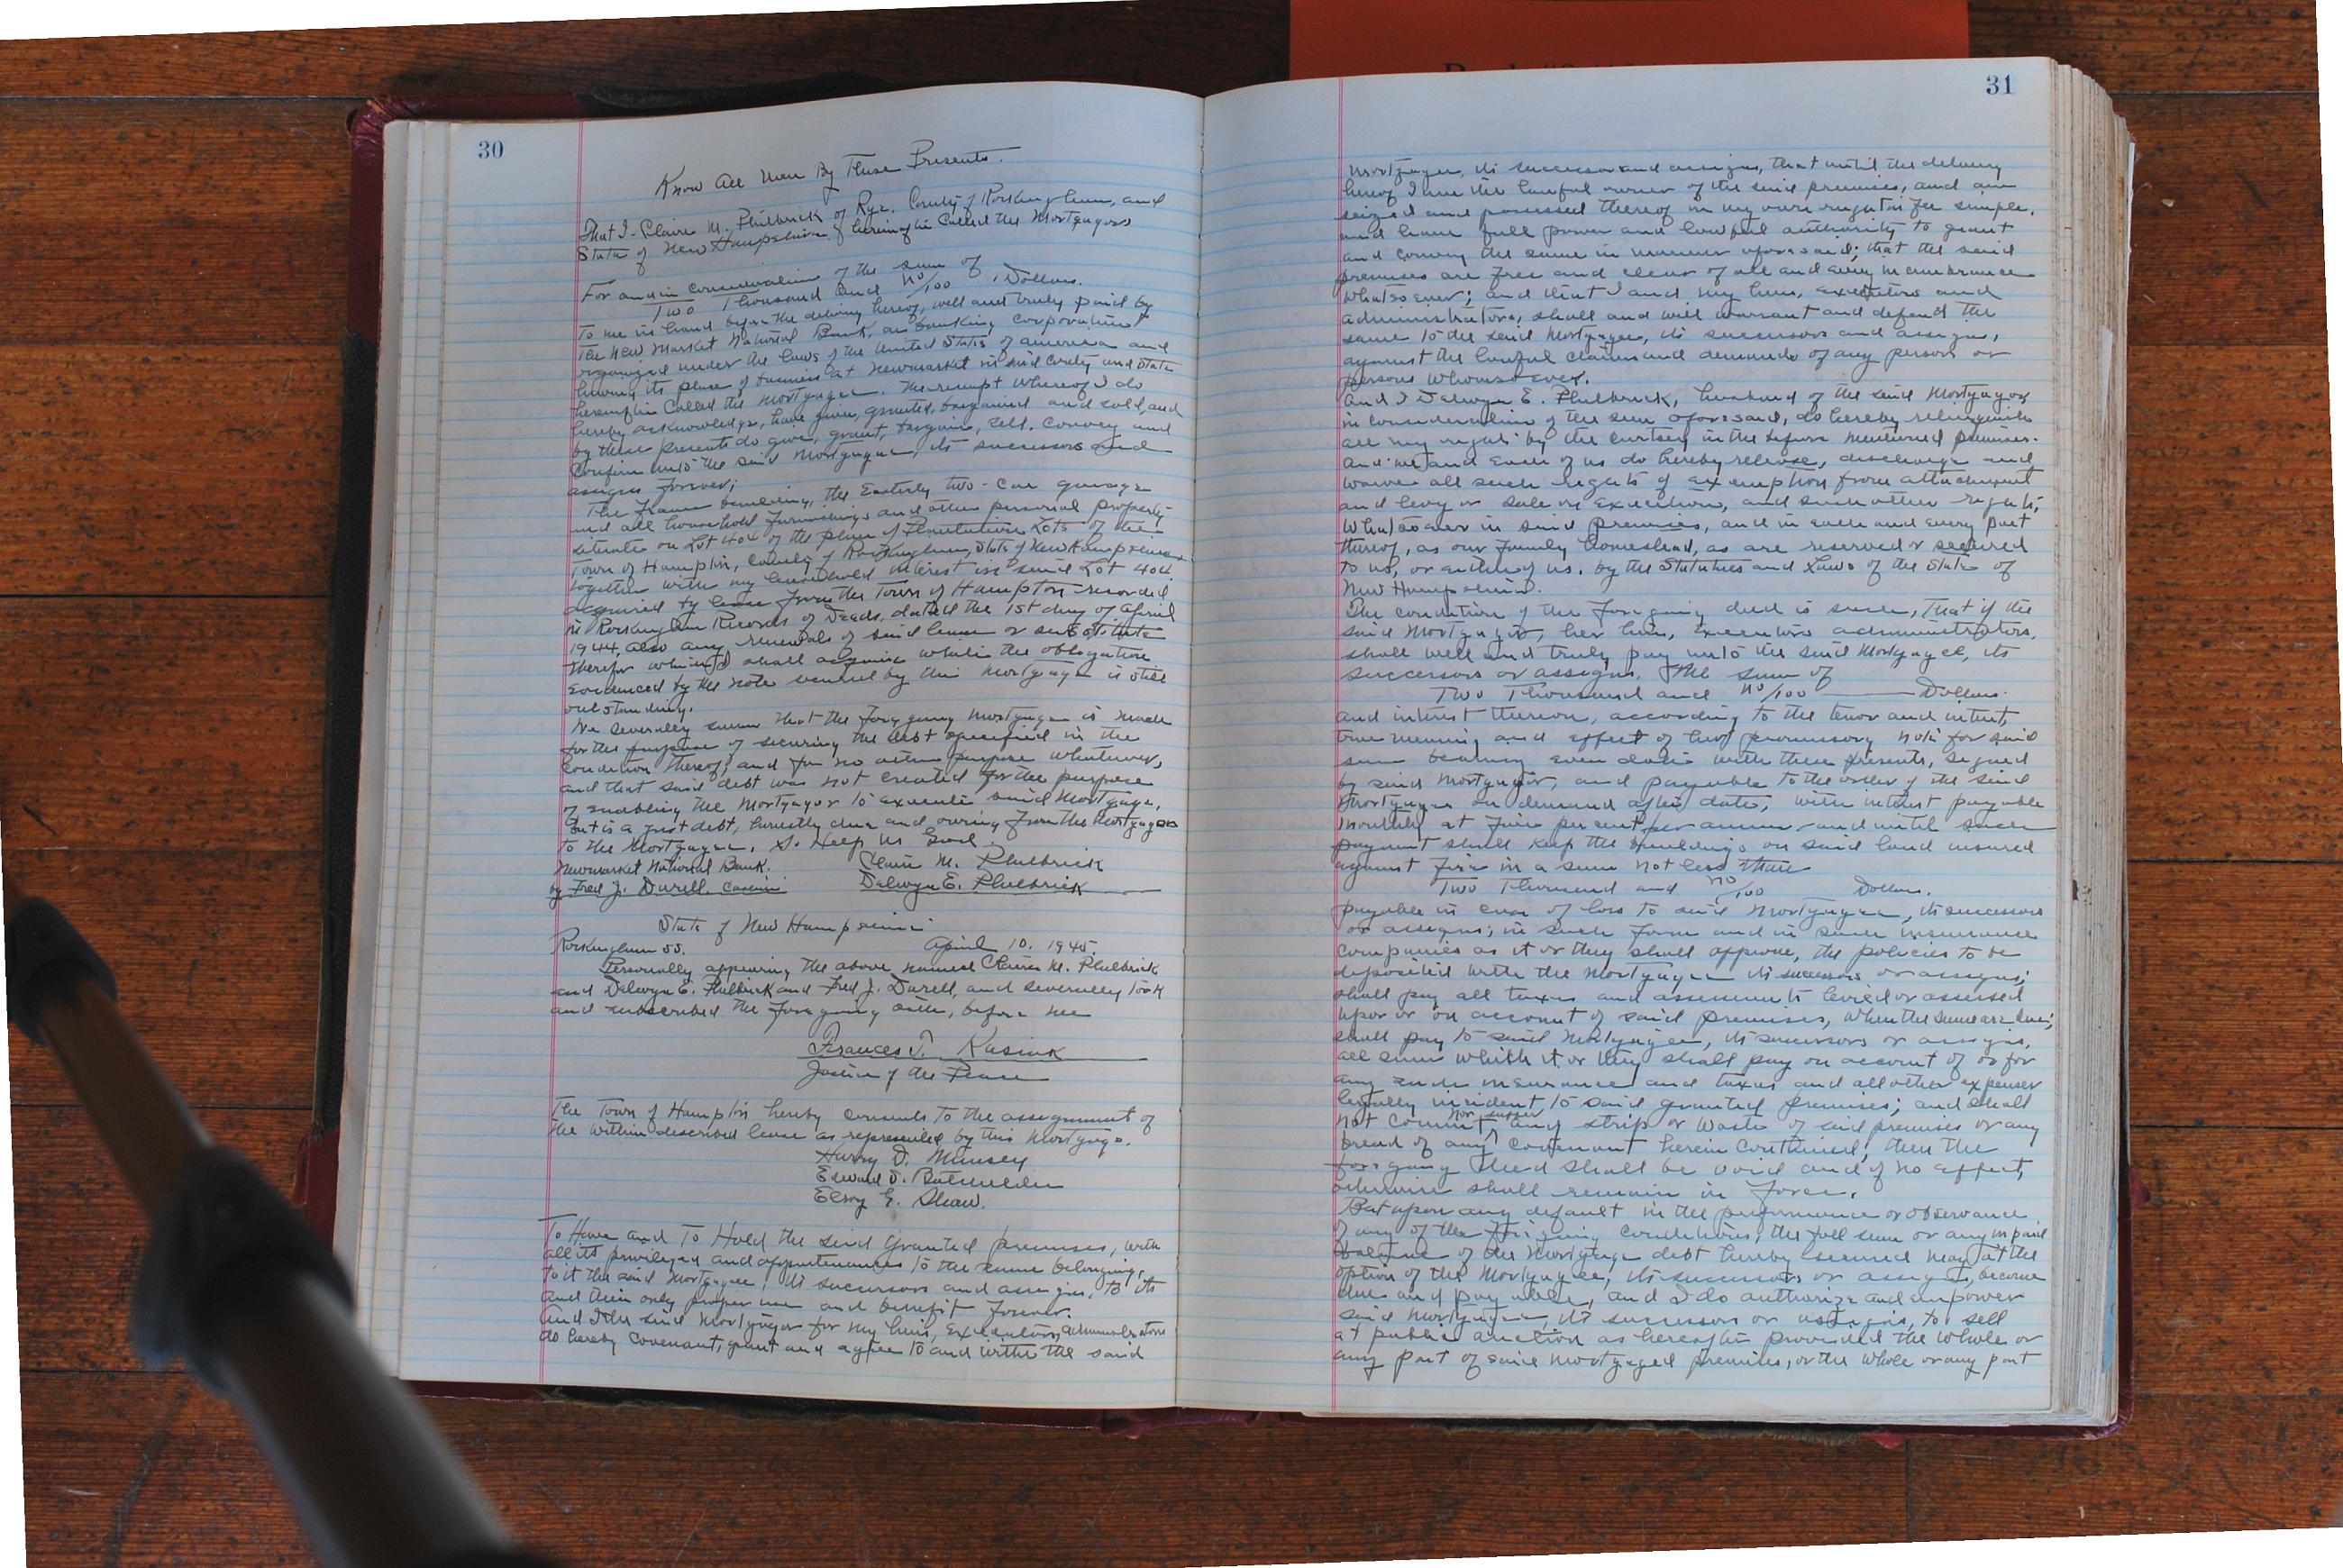 30
Know All Men By These Presents.
That I, Claire M. Philbrick of Rye, County of Rockingham, and
State of New Hampshire, hereinafter called the Mortgagors
For and in consideration of the sum of
Two Thousand and no/100 Dollars.
To me in hand before the delivery hereof, well and truly paid by
The New Market National Bank, a banking corporation
organized under the laws of the United States of America and
having its place of business at Newmarket in said County and State
hereinafter called the Mortgagee. The receipt whereof I do
hereby acknowledge, have given, granted, bargained and sold, and
by these presents do give, grant, bargain, sell, convey and
confirm unto the said Mortgagee, its successors and
assigns forever;
The frame building, the Easterly two-car garage
and all household furnishings and other personal property
situate on Lot 404 of the plan of Plantation Lots of the
Town of Hampton, County of Rockingham, State of New Hampshire.
together with my leasehold interest in said Lot 404
acquired by lease from the Town of Hampton recorded
in Rockingham Records of Deeds, dated the 1st day of April
1944, also any renewals of said lease or substitute
therefor which I shall acquire while the obligation
evidenced by the note secured by this mortgage is still
outstanding.
We severally swear that the foregoing mortgage is made
for the purpose of securing the debt specified in the
condition thereof, and for no other purpose whatever,
and that said debt was not created for the purpose
of enabling the Mortgagor to execute said mortgage,
but is a just debt, honestly due and owing from the Mortgagor
to the Mortgagee. So Help Us God.
Newmarket National Bank. Claire M. Philbrick
by Fred J. Durell, Cashier Delwyn E. Philbrick
State of New Hampshire
Rockingham SS. April 10. 1945.
Personally appearing the above named Claire M. Philbrick
and Delwyn E. Philbrick and Fred J. Durell, and severally took
and subscribed the foregoing oath, before me
Frances T. Kusiak
Justice of the Peace
The Town of Hampton hereby consents to the assignment of
the within described lease as represented by this Mortgage.
Harry D. Munsey
Edward S. Batchelder
Elroy G. Shaw.
To Have and To Hold the said granted premises, with
all its privileges and appurtenances to the same belonging,
to it the said Mortgagee, its successors and assigns, to its
and their only proper use and benefit forever.
And I the said Mortgagor for my heirs, executors, administrators
do hereby covenant, grant and agree to and with the said
31
Mortgagee, its successors and assigns, that until the delivery
hereof I am the lawful owner of the said premises, and am
seized and possessed thereof in my own right in fee simple.
and have full power and lawful authority to grant
and convey the same in manner aforesaid; that the said
premises are free and clear of all and every incumbrance
whatsoever; and that I and my heirs, executors and
administrators, shall and will warrant and defend the
same to the said Mortgagee, its successors and assigns,
against the lawful claims and demands of any person or
persons whomsoever.
And I Delwyn E. Philbrick, husband of the said Mortgagor,
in consideration of the sum aforesaid, do hereby relinquish
all my right by the curtesy in the before mentioned premises.
And we and each of us do hereby release, discharge and
waive all such rights of exemption from attachment
and levy or sale on execution, and such other rights,
whatsoever in said premises, and in each and every part
thereof, as our family homestead, as are reserved or secured
to us, or either of us, by the Statutes and Laws of the State of
New Hampshire.
The condition of the foregoing deed is such, That if the
said Mortgagor, her heirs, executors administrators,
shall well and truly pay unto the said Mortgagee, its
successors or assigns, the sum of
Two Thousand and no/100 Dollars.
and interest thereon, according to the tenor and intent,
true meaning and effect of her promissory note for said
sum bearing even date with these presents, signed
by said Mortgagor, and payable to the order of the said
Mortgagee on demand after date, with interest payable
monthly at five per cent per annum and until such
payment shall keep the buildings on said land insured
against fire in a sum not less than
Two Thousand and no/100 Dollars.
payable in case of loss to said Mortgagee, its successors
or assigns; in such form and in such insurance
companies as it or they shall approve, the policies to be
deposited with the Mortgagee its successors or assigns;
shall pay all taxes and assessments levied or assessed
upon or on account of said premises, when the same are due;
shall pay to said Mortgagee, its successors or assigns,
all sums which it or they shall pay on account of or for
any such insurance and taxes and all other expenses
legally incident to said granted premises; and shall
not commit nor suffer any strip or waste of said premises or any
breach of any covenant herein contained, then the
foregoing deed shall be void and of no effect,
otherwise shall remain in force.
But upon any default in the performance or observance
of any of the foregoing conditions, the full sum or any unpaid
balance of the mortgage debt hereby secured may at the
option of the Mortgagee, its successors or assigns, become
due and payable, and I do authorize and empower
said Mortgagee, its successors or assigns, to sell
at public auction as hereafter provided the whole or
any part of said mortgaged premises, or the whole or any part